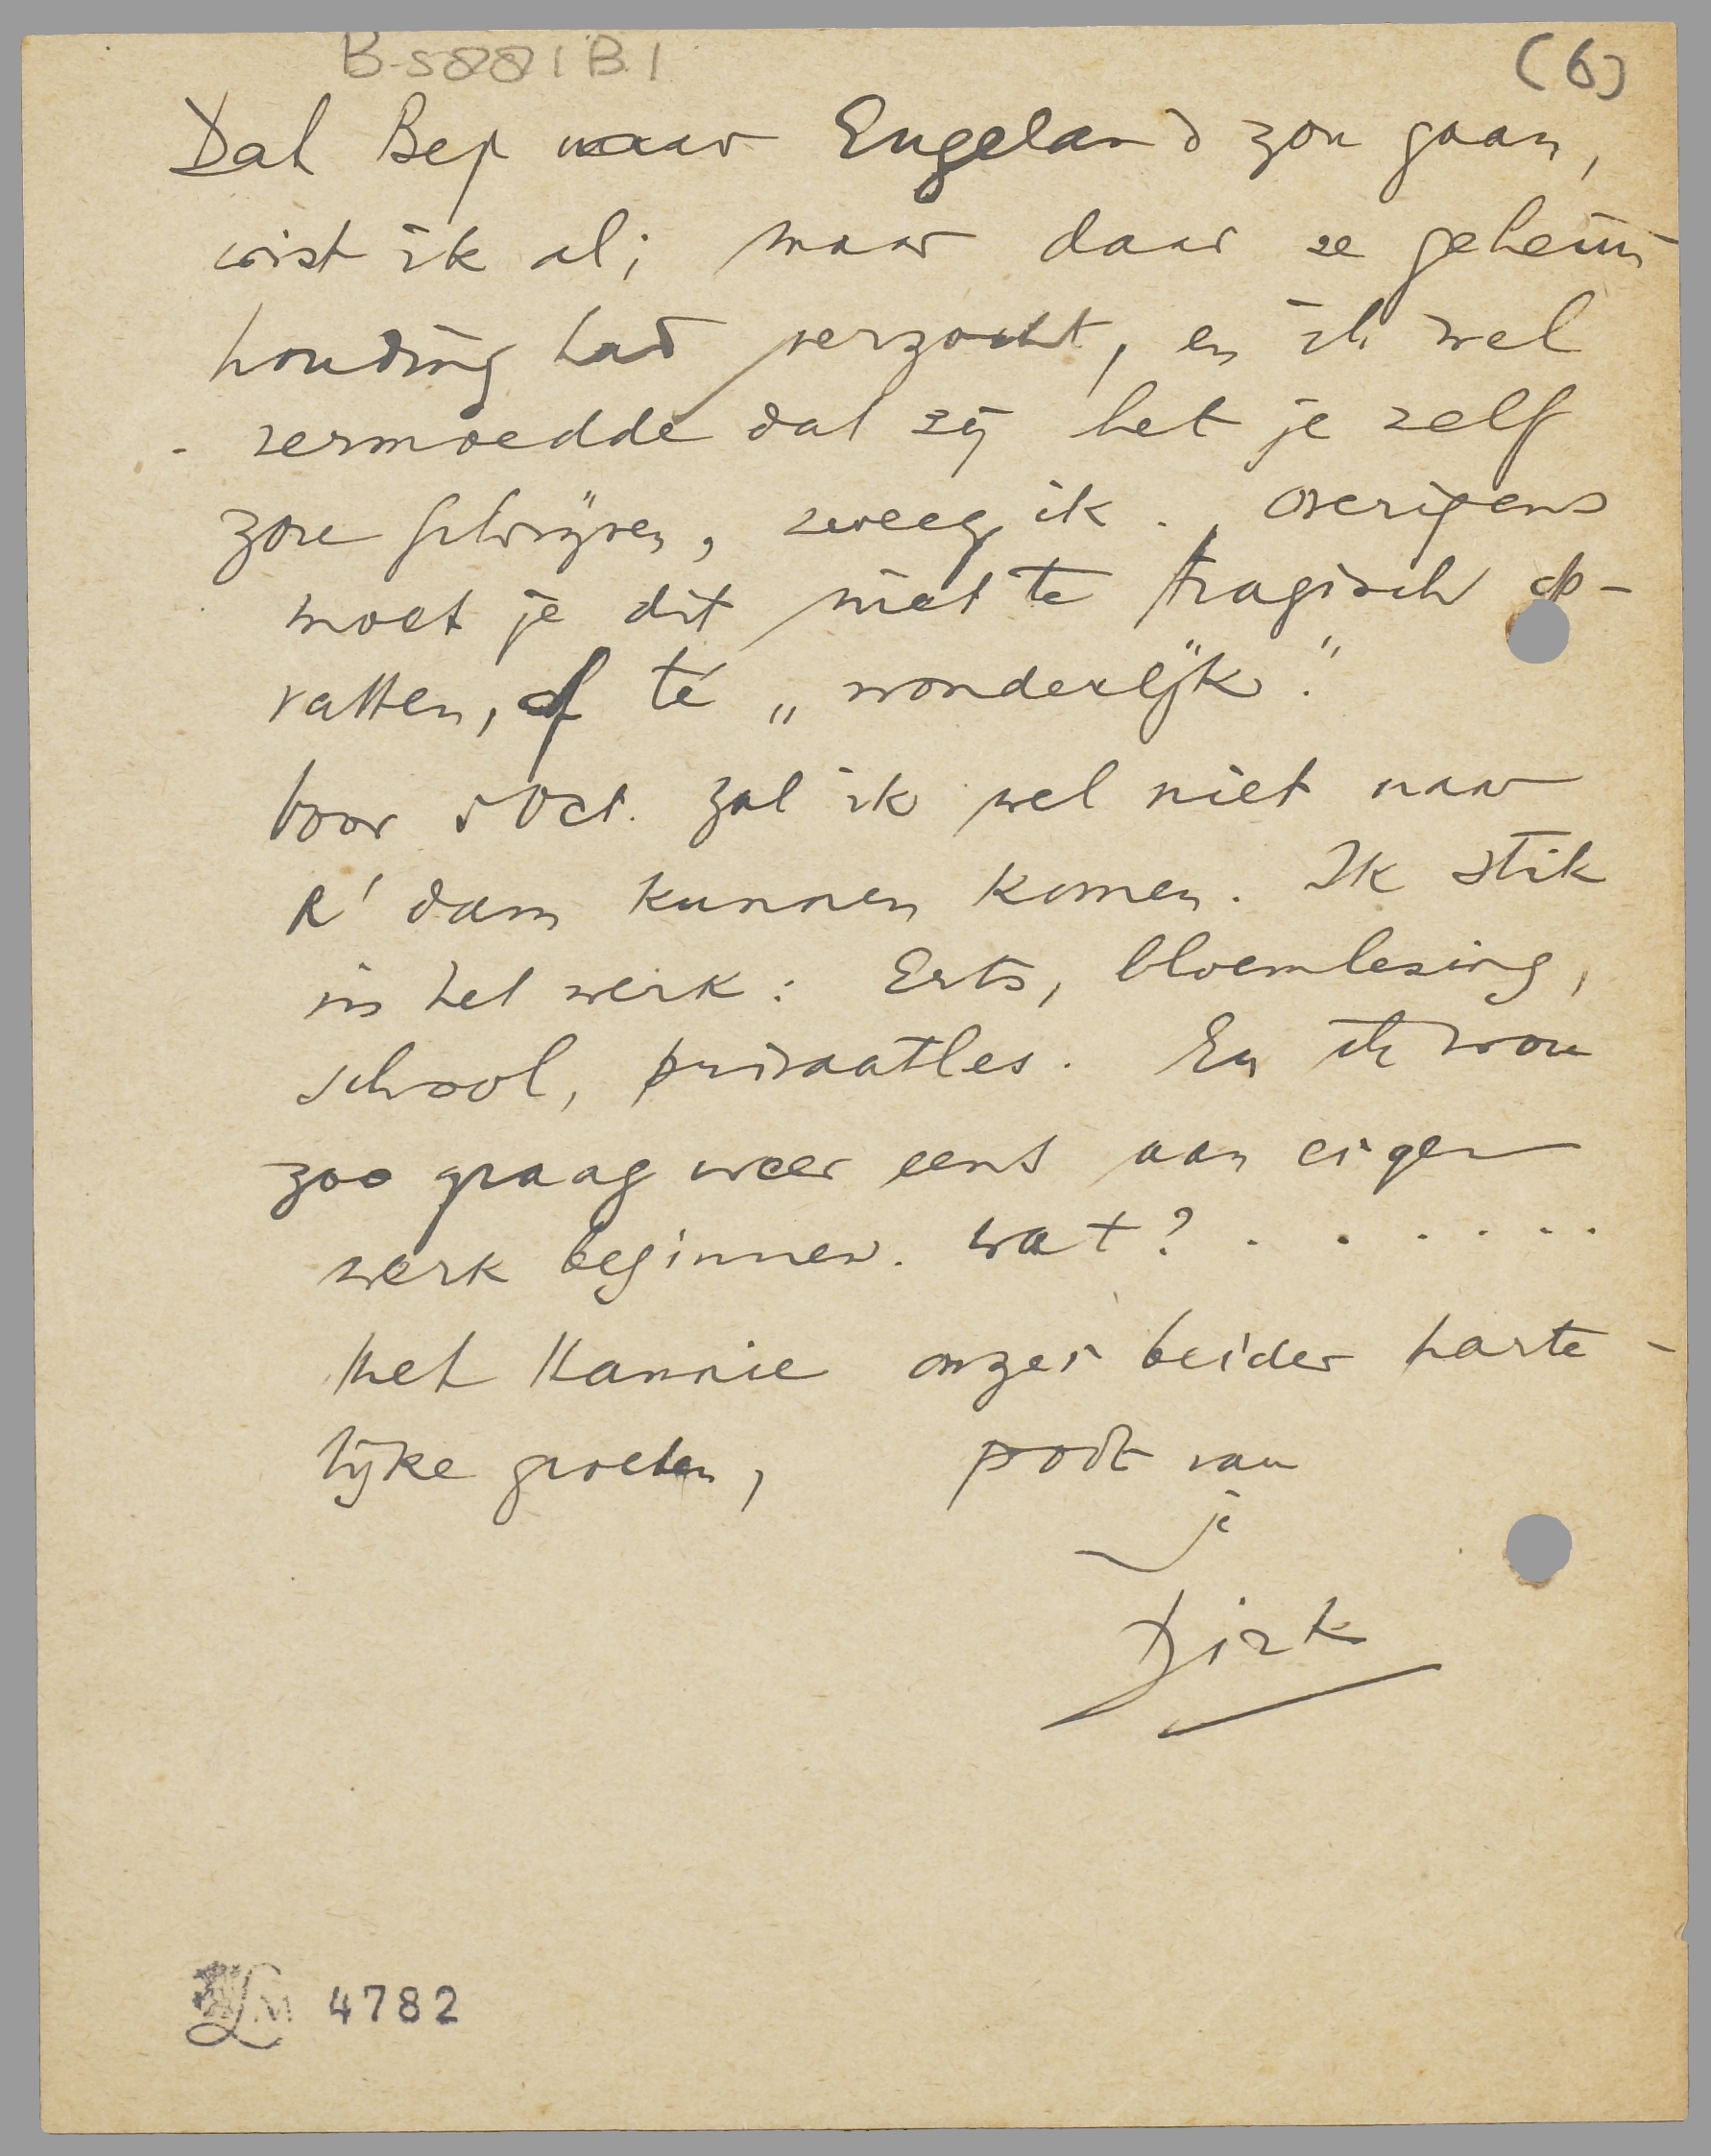 B-5881B1
(6)
Dat Bep naar Engeland zou gaan,
wist ik al; maar daar ze geheim
houding had verzocht, en ik wel
vermoedde dat zij het je zelf
zou schrijven, zweeg ik. Overigens
moet je dit niet te tragisch op-
vatten, of te „wonderlijk."
Voor 5 Oct. zal ik wel niet naar
R'dam kunnen komen. Ik stik
in het werk: Erts, bloemlezing,
school, privaatles. En ik wou
zoo graag weer eens aan eigen
werk beginnen. Wat? . . . . . .
Met Hannie onzer beider harte-
lijke groeten, poot van
je
Dirk
LM 4782